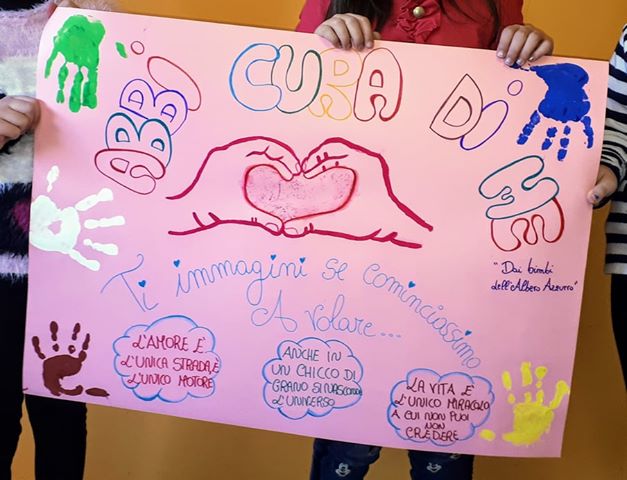 ABBI CURA DI ME
"Dai bimbi
dell'Albero Azzurro"
Ti immagini se cominciassimo
A volare...
L'AMORE È
L'UNICA STRADA, È
L'UNICO MOTORE
ANCHE IN
UN CHICCO DI
GRANO SI NASCONDE
L'UNIVERSO
LA VITA È
L'UNICO MIRACOLO
A CUI NON PUOI
NON
CREDERE